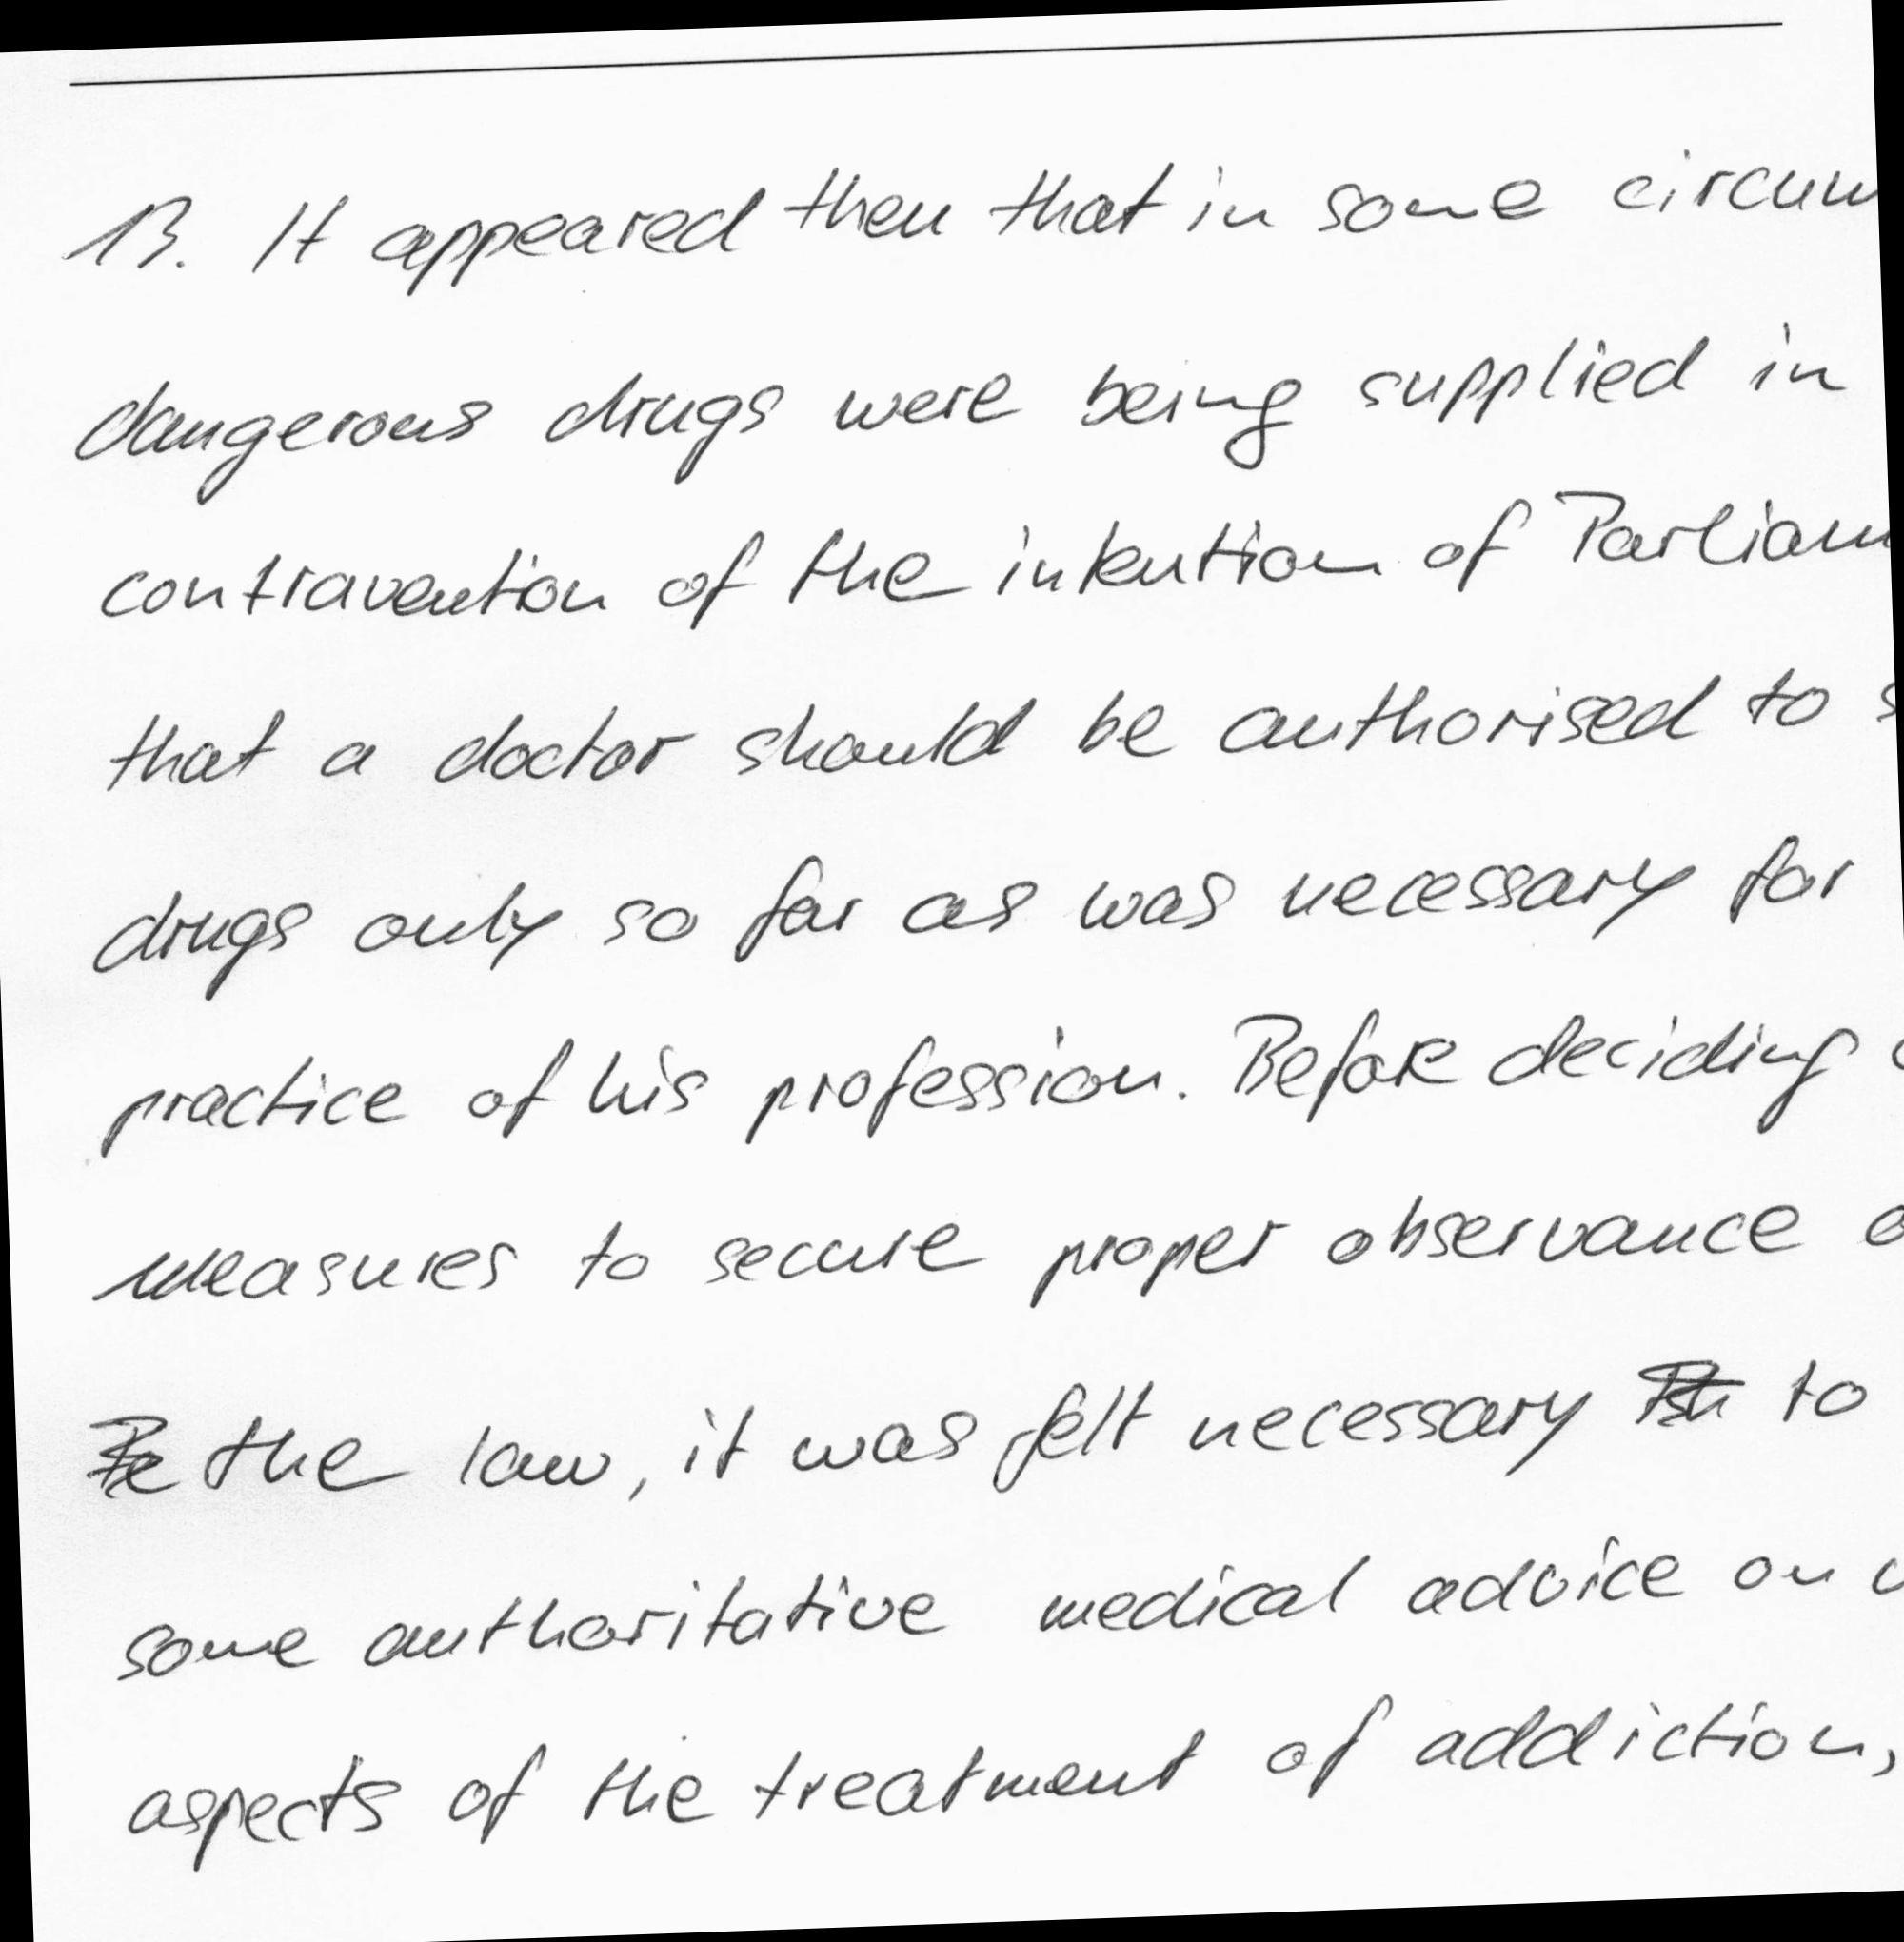 13. It appeared then that in some circum
dangerous drugs were being supplied in
contravention of the intention of Parliam
that a doctor should be authorised to s
drugs only so far as was necessary for
practice of his profession. Before deciding
measures to secure proper observance o
the law, it was felt necessary to
some authoritative medical advice on
aspects of the treatment of addiction,